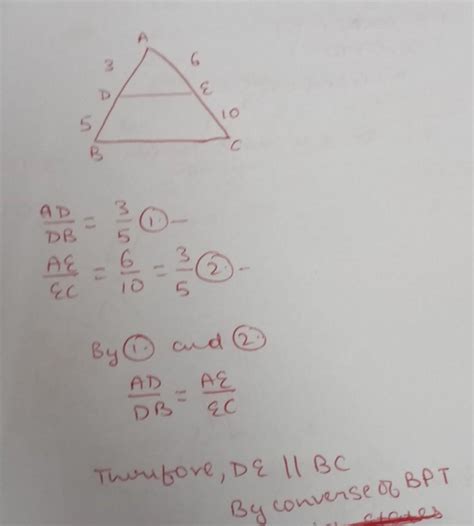 A
3 6
D E
5 10
B C
AD/DB = 3/5 ① -
AE/EC = 6/10 = 3/5 ② -
By ① and ②
AD/DB = AE/EC
Therefore, DE || BC
By converse of BPT